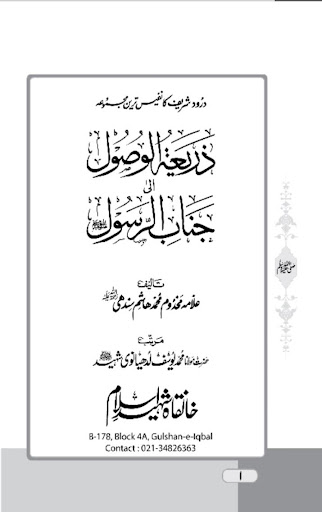 درود شریف کا نفیس ترین مجموعہ
ذريعة الوصول
الى
جناب الرسول ﷺ
تالیف
علامہ مخدوم محمد ہاشم سندھی
مرتب
حضرت مولانا محمد یوسف لدھیانوی شہید
خانقاہ شہید اسلام
B-178, Block 4A, Gulshan-e-Iqbal
Contact : 021-34826363
ﷺ
۱